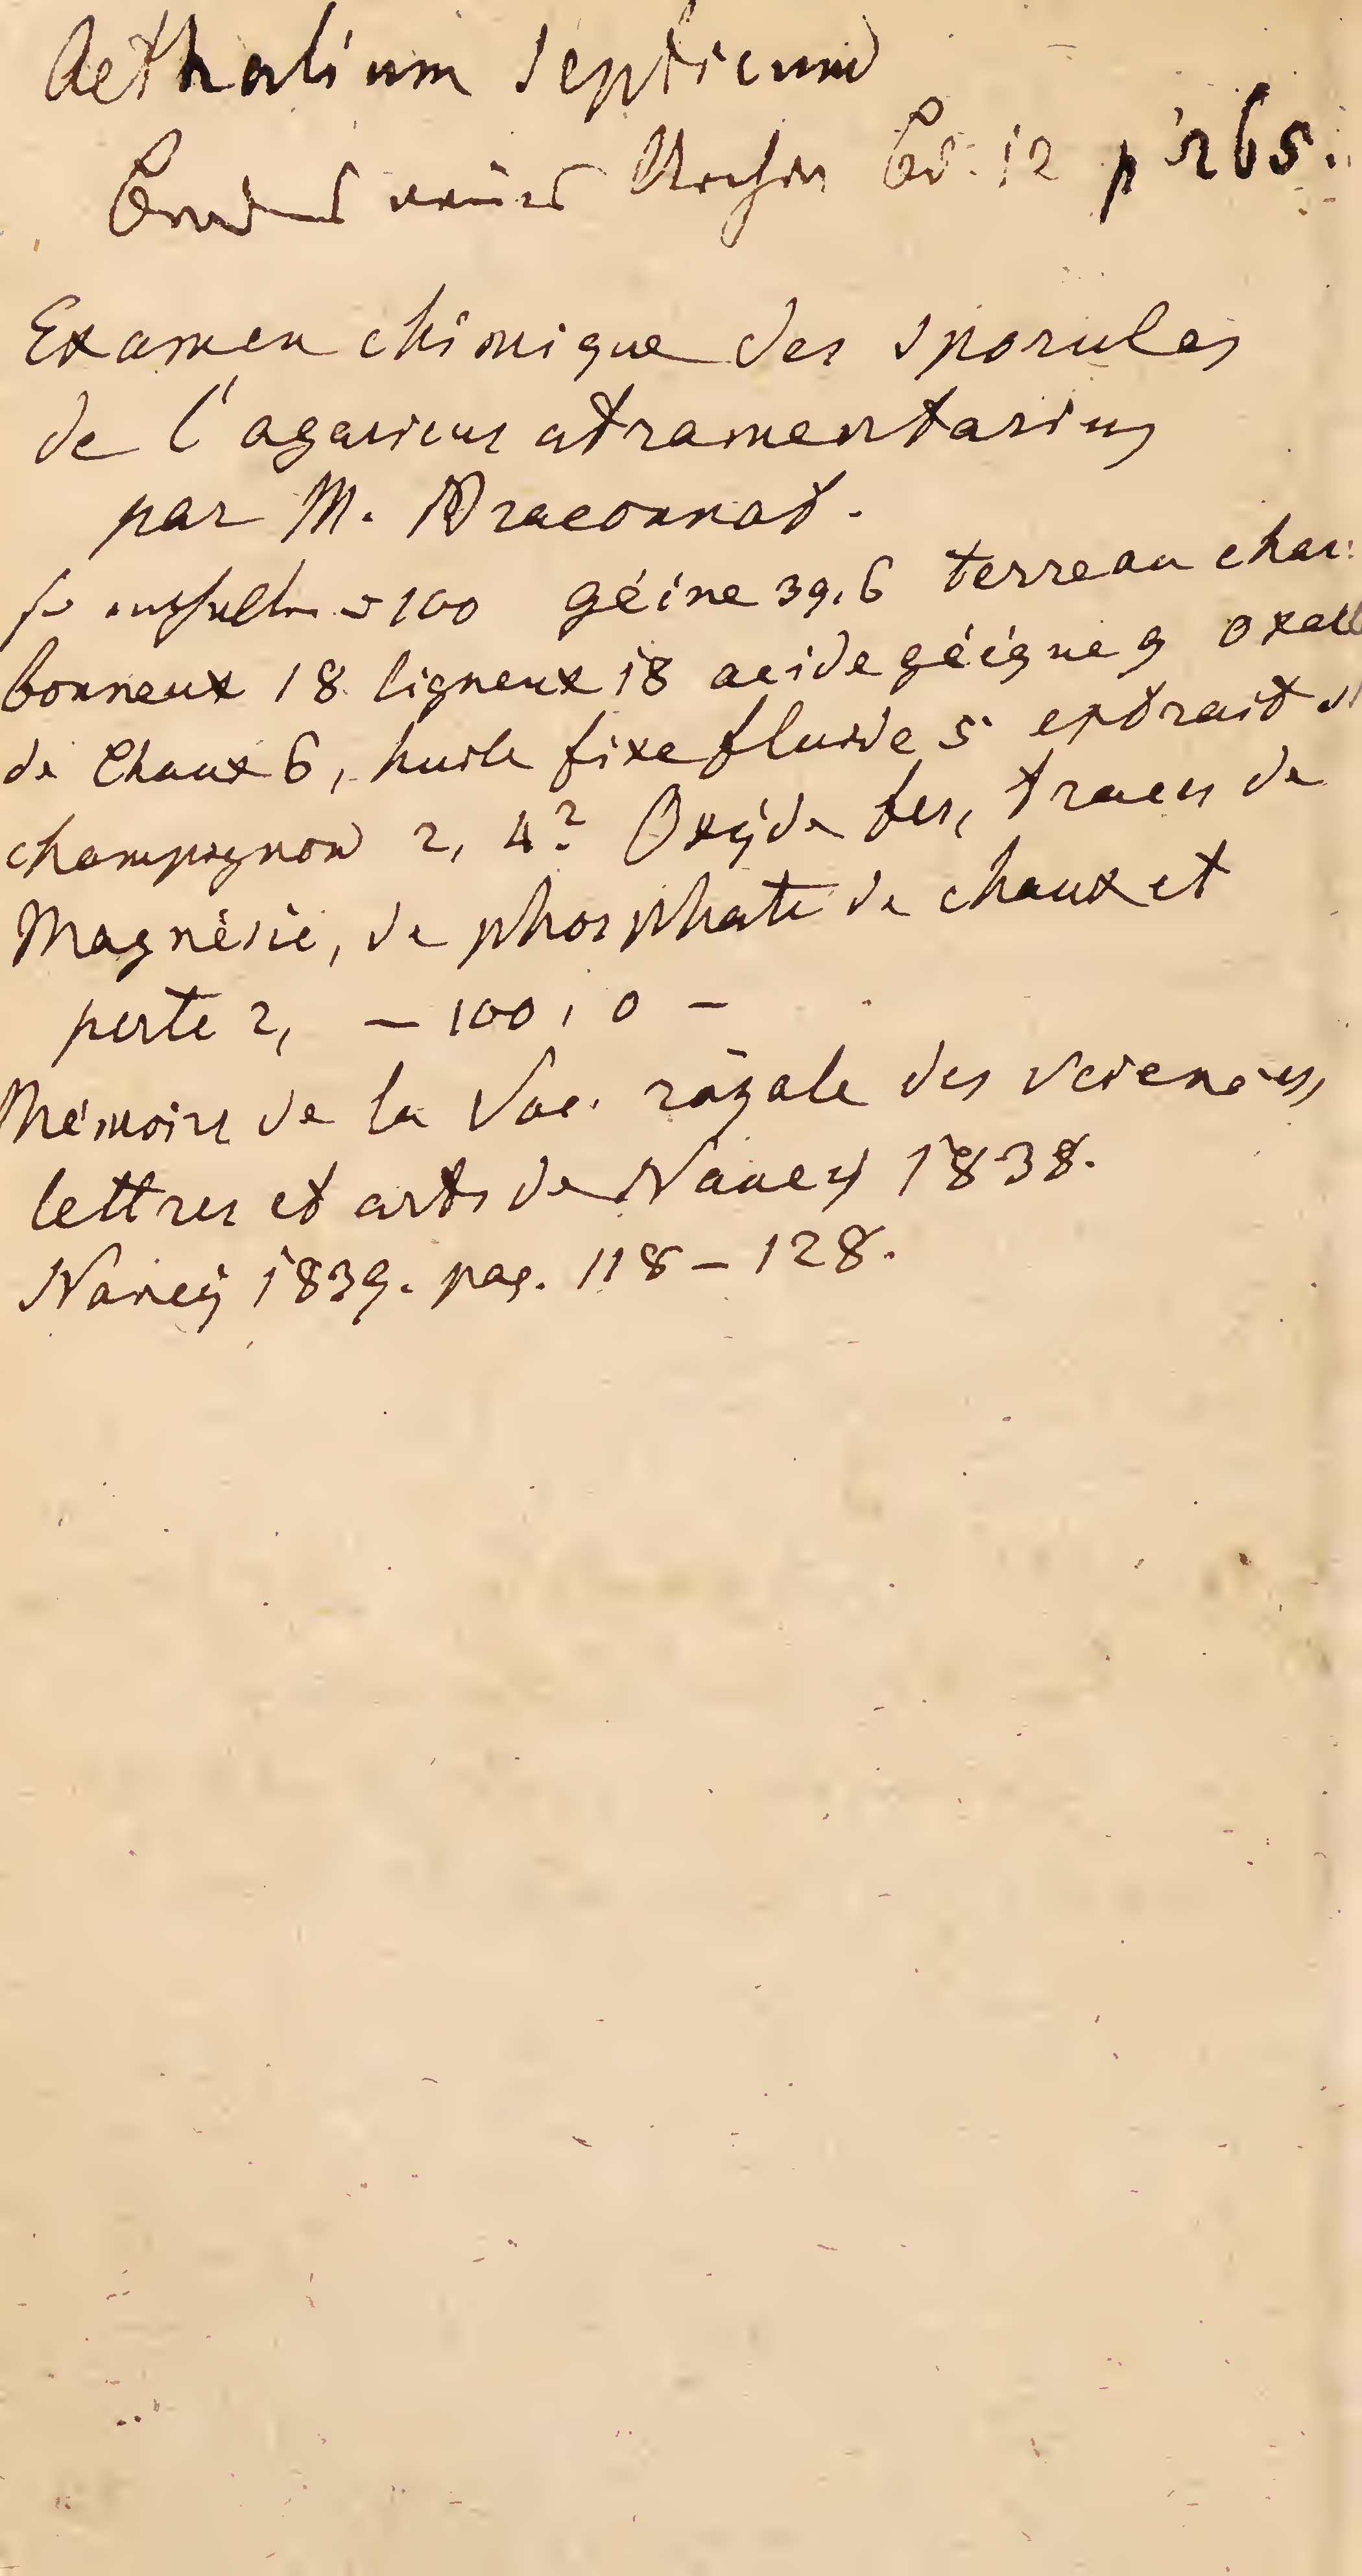 Aethalium septicum
Brandes neues Archiv Bd. 12 p 265.
Examen chimique des sporules
de l'agaricus atramentarius
par M. Braconnot.
Sie enthalten in 100 géine 39,6 terreau char:
bonneux 18 ligneux 18 acide géique 9 oxal
de Chaux 6, huile fixe fluide 5 extrait d
champignon 2, 4? Oxÿde fer, traces de
Magnésie, de phosphate de chaux et
perte 2, — 100,0 —
Mémoires de la Soc. royale des sciences,
lettres et arts de Nancy 1838.
Nancÿ 1839. pag. 118–128.